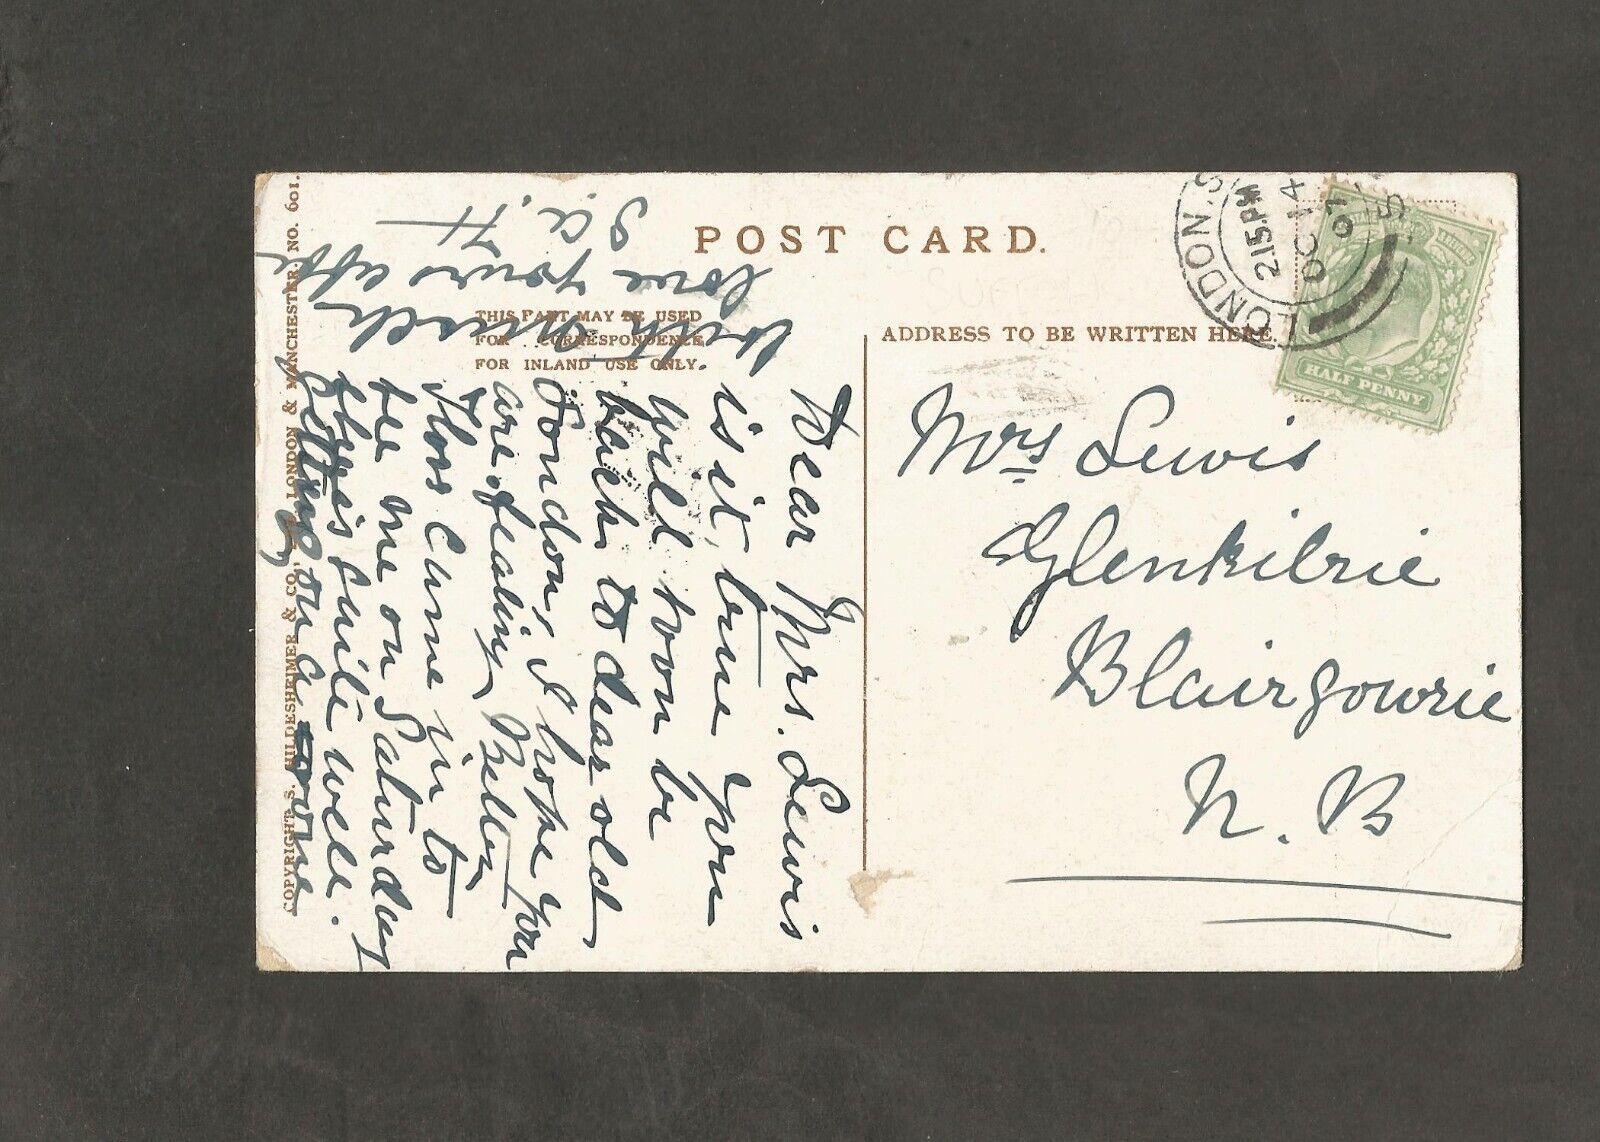 POST CARD.
THIS PART MAY BE USED
FOR CORRESPONDENCE
FOR INLAND USE ONLY.
ADDRESS TO BE WRITTEN HERE.
LONDON. S
2 15 PM
OC 14
07
HALF PENNY
Mrs Lewis
Glenkilrie
Blairgowrie
N. B
Dear Mrs. Lewis
is it true you
will soon be
back to dear old
London, I hope you
are feeling Better
Floss came in to
see me on Saturday
she is quite well.
getting on
with much
love yours affe
S. A. H
COPYRIGHT S. HILDESHEIMER & CO., LONDON & MANCHESTER. NO. 601.